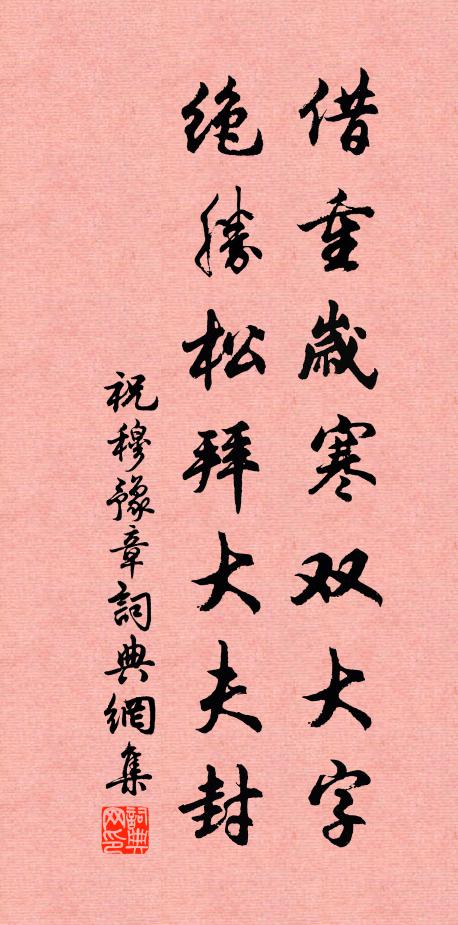 借重岁寒双大字
绝胜松拜大夫封
祝穆豫章詞典網集
詞典网印